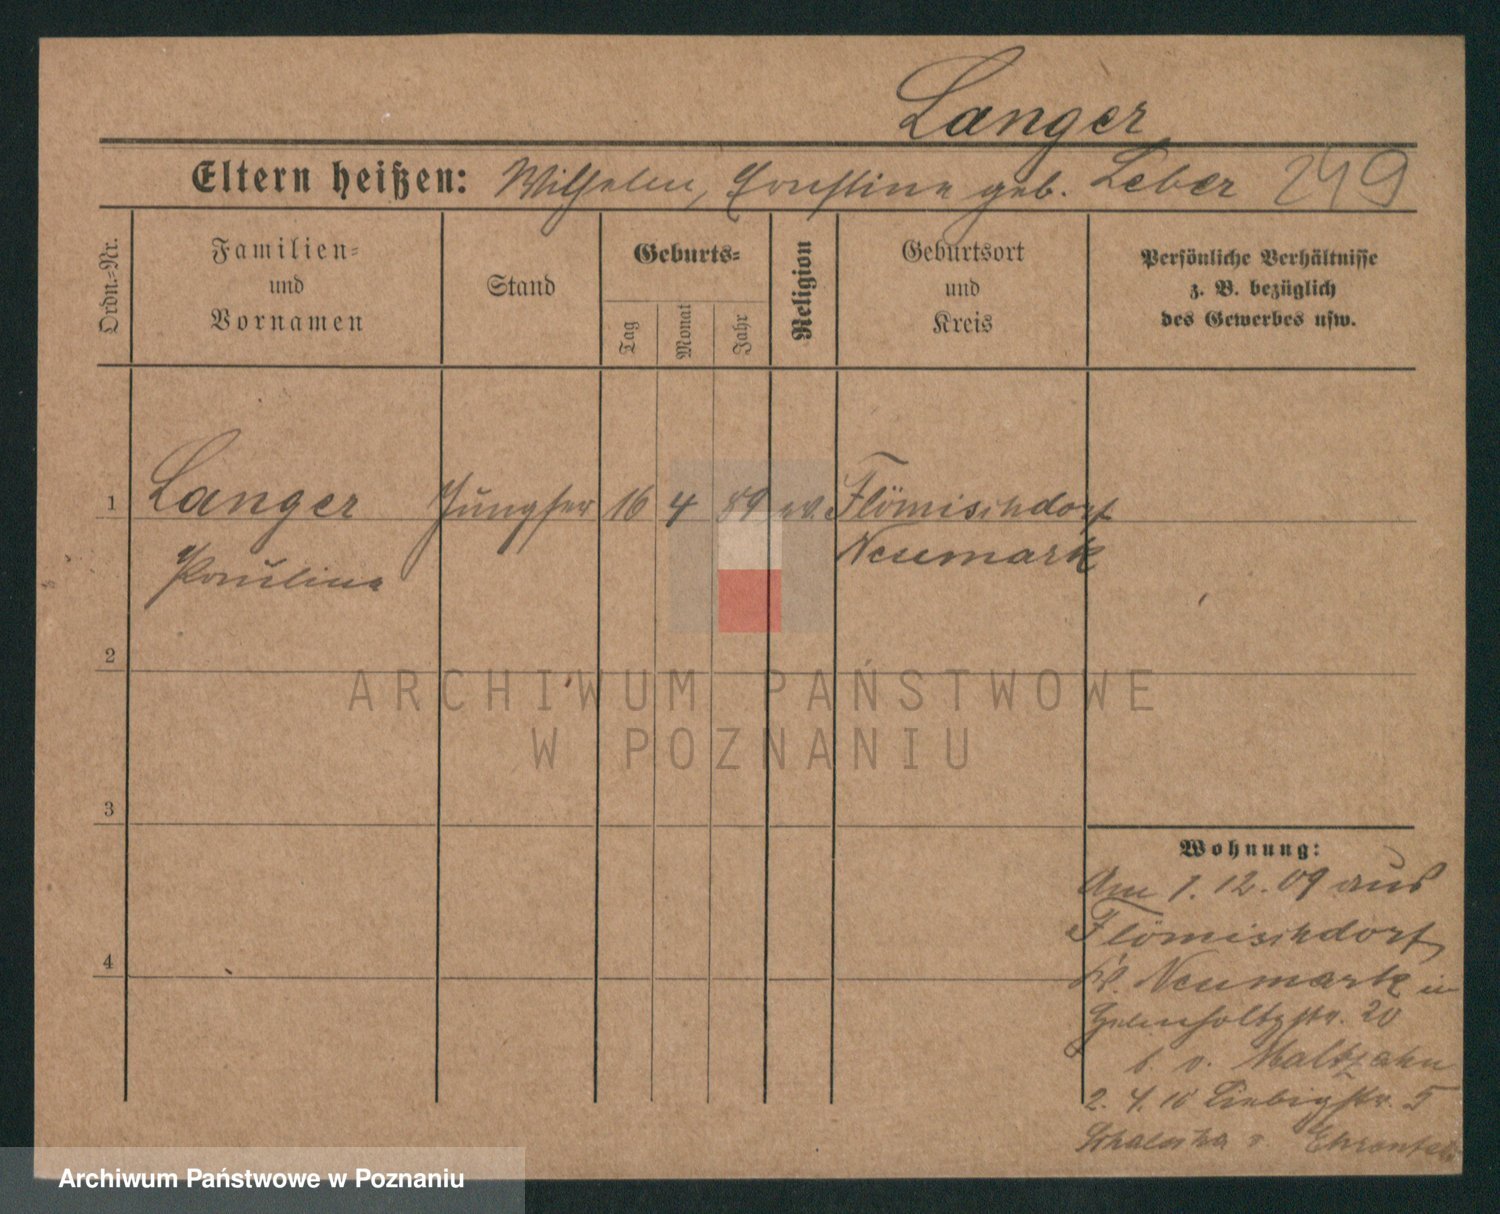 Langer
Eltern heißen: Wilhelm, geb. Leber 249
Ordn.-Nr.
Familien-
und
Vornamen
Stand
Geburts-
Tag
Monat
Jahr
Religion
Geburtsort
und
Kreis
Persönliche Verhältnisse
z. B. bezüglich
des Gewerbes usw.
1 Langer Jungfer 16 4 89 ev. Flömischdorf
Pauline Neumark
2
3
4
Wohnung:
Am 1. 12. 09 aus
Flömischdorf,
Kr. Neumark in
20
b. v. Maltzahn
2. 4. 10 Liebigstr. 5
ARCHIWUM PAŃSTWOWE
W POZNANIU
Archiwum Państwowe w Poznaniu